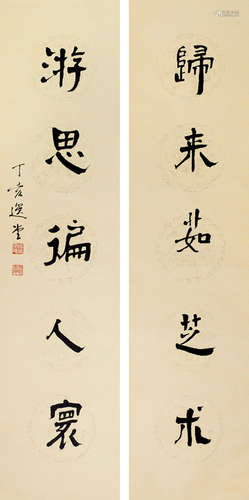 歸来茹芝朮
游思徧人寰
丁亥選堂